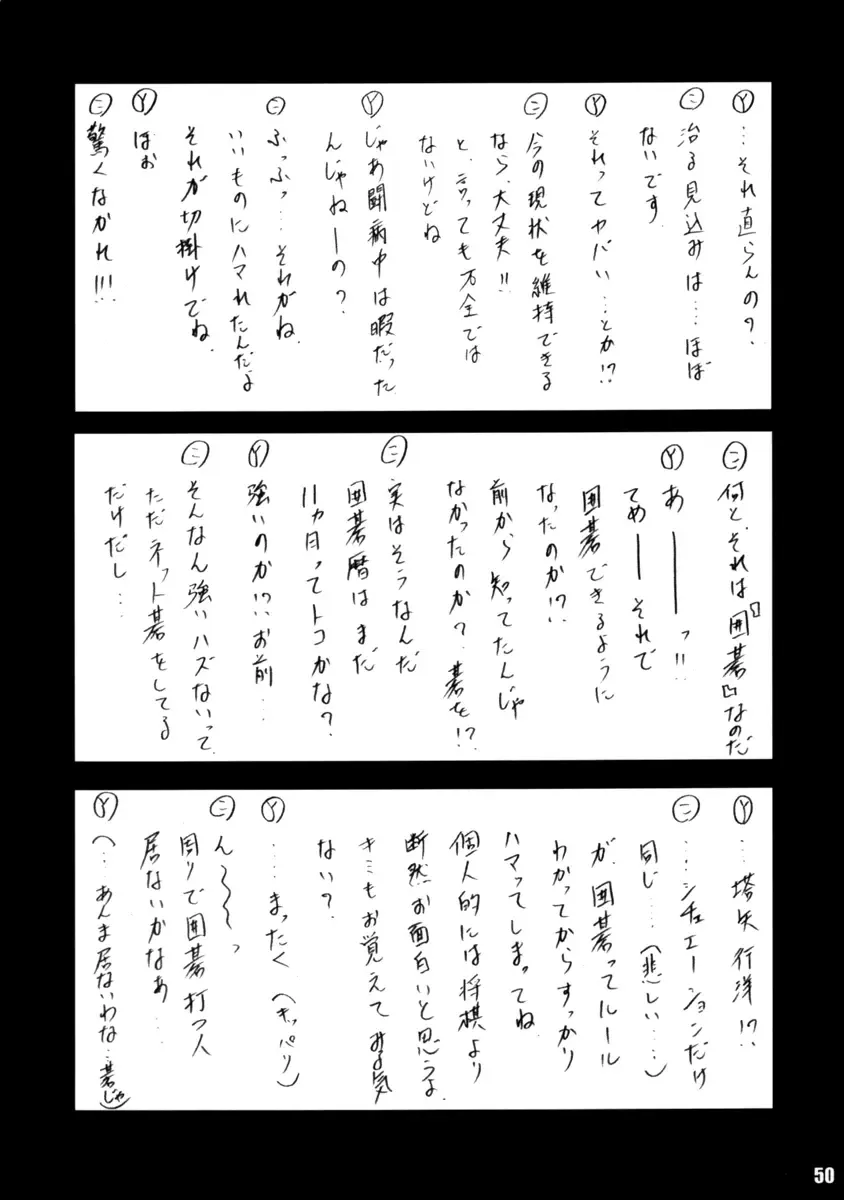 Ⓨ …それ直らんの?
㊁ 治る見込みは……ほぼ
ないです.
Ⓨ それってヤバい…とか!?
㊁ 今の現状を維持できる
なら、大丈夫!!
と、言っても万全では
ないけどね
Ⓨ じゃあ闘病中は暇だった
んじゃねーの?
㊁ ふっふっ…それがね.
いいものにハマれたんだよ
それが切掛けでね.
Ⓨ ほぉ
㊁ 驚くなかれ!!!
㊁ 何と、それは『囲碁』なのだ
Ⓨ あ――――っ!!
てめ――それで
囲碁できるように
なったのか!?
前から知ってたんじゃ
なかったのか?碁を!?
㊁ 実はそうなんだ
囲碁暦はまだ
11ヵ月ってトコかな?
Ⓨ 強いのか!?お前…
㊁ そんなん強いハズないって
ただネット碁をしてる
だけだし…
Ⓨ …塔矢行洋!?
㊁ ……シチュエーションだけ
同じ……(悲しい……)
が、囲碁ってルール
わかってからすっかり
ハマってしまってね
個人的には将棋より
断然お面白いと思うよ
キミもお覚えてみる気
ない?
Ⓨ ……まったく(キッパリ)
㊁ ん〜〜〜っ
周りで囲碁打つ人
居ないかなぁ…
Ⓨ (…あんま居ないわな…碁じゃ)
50